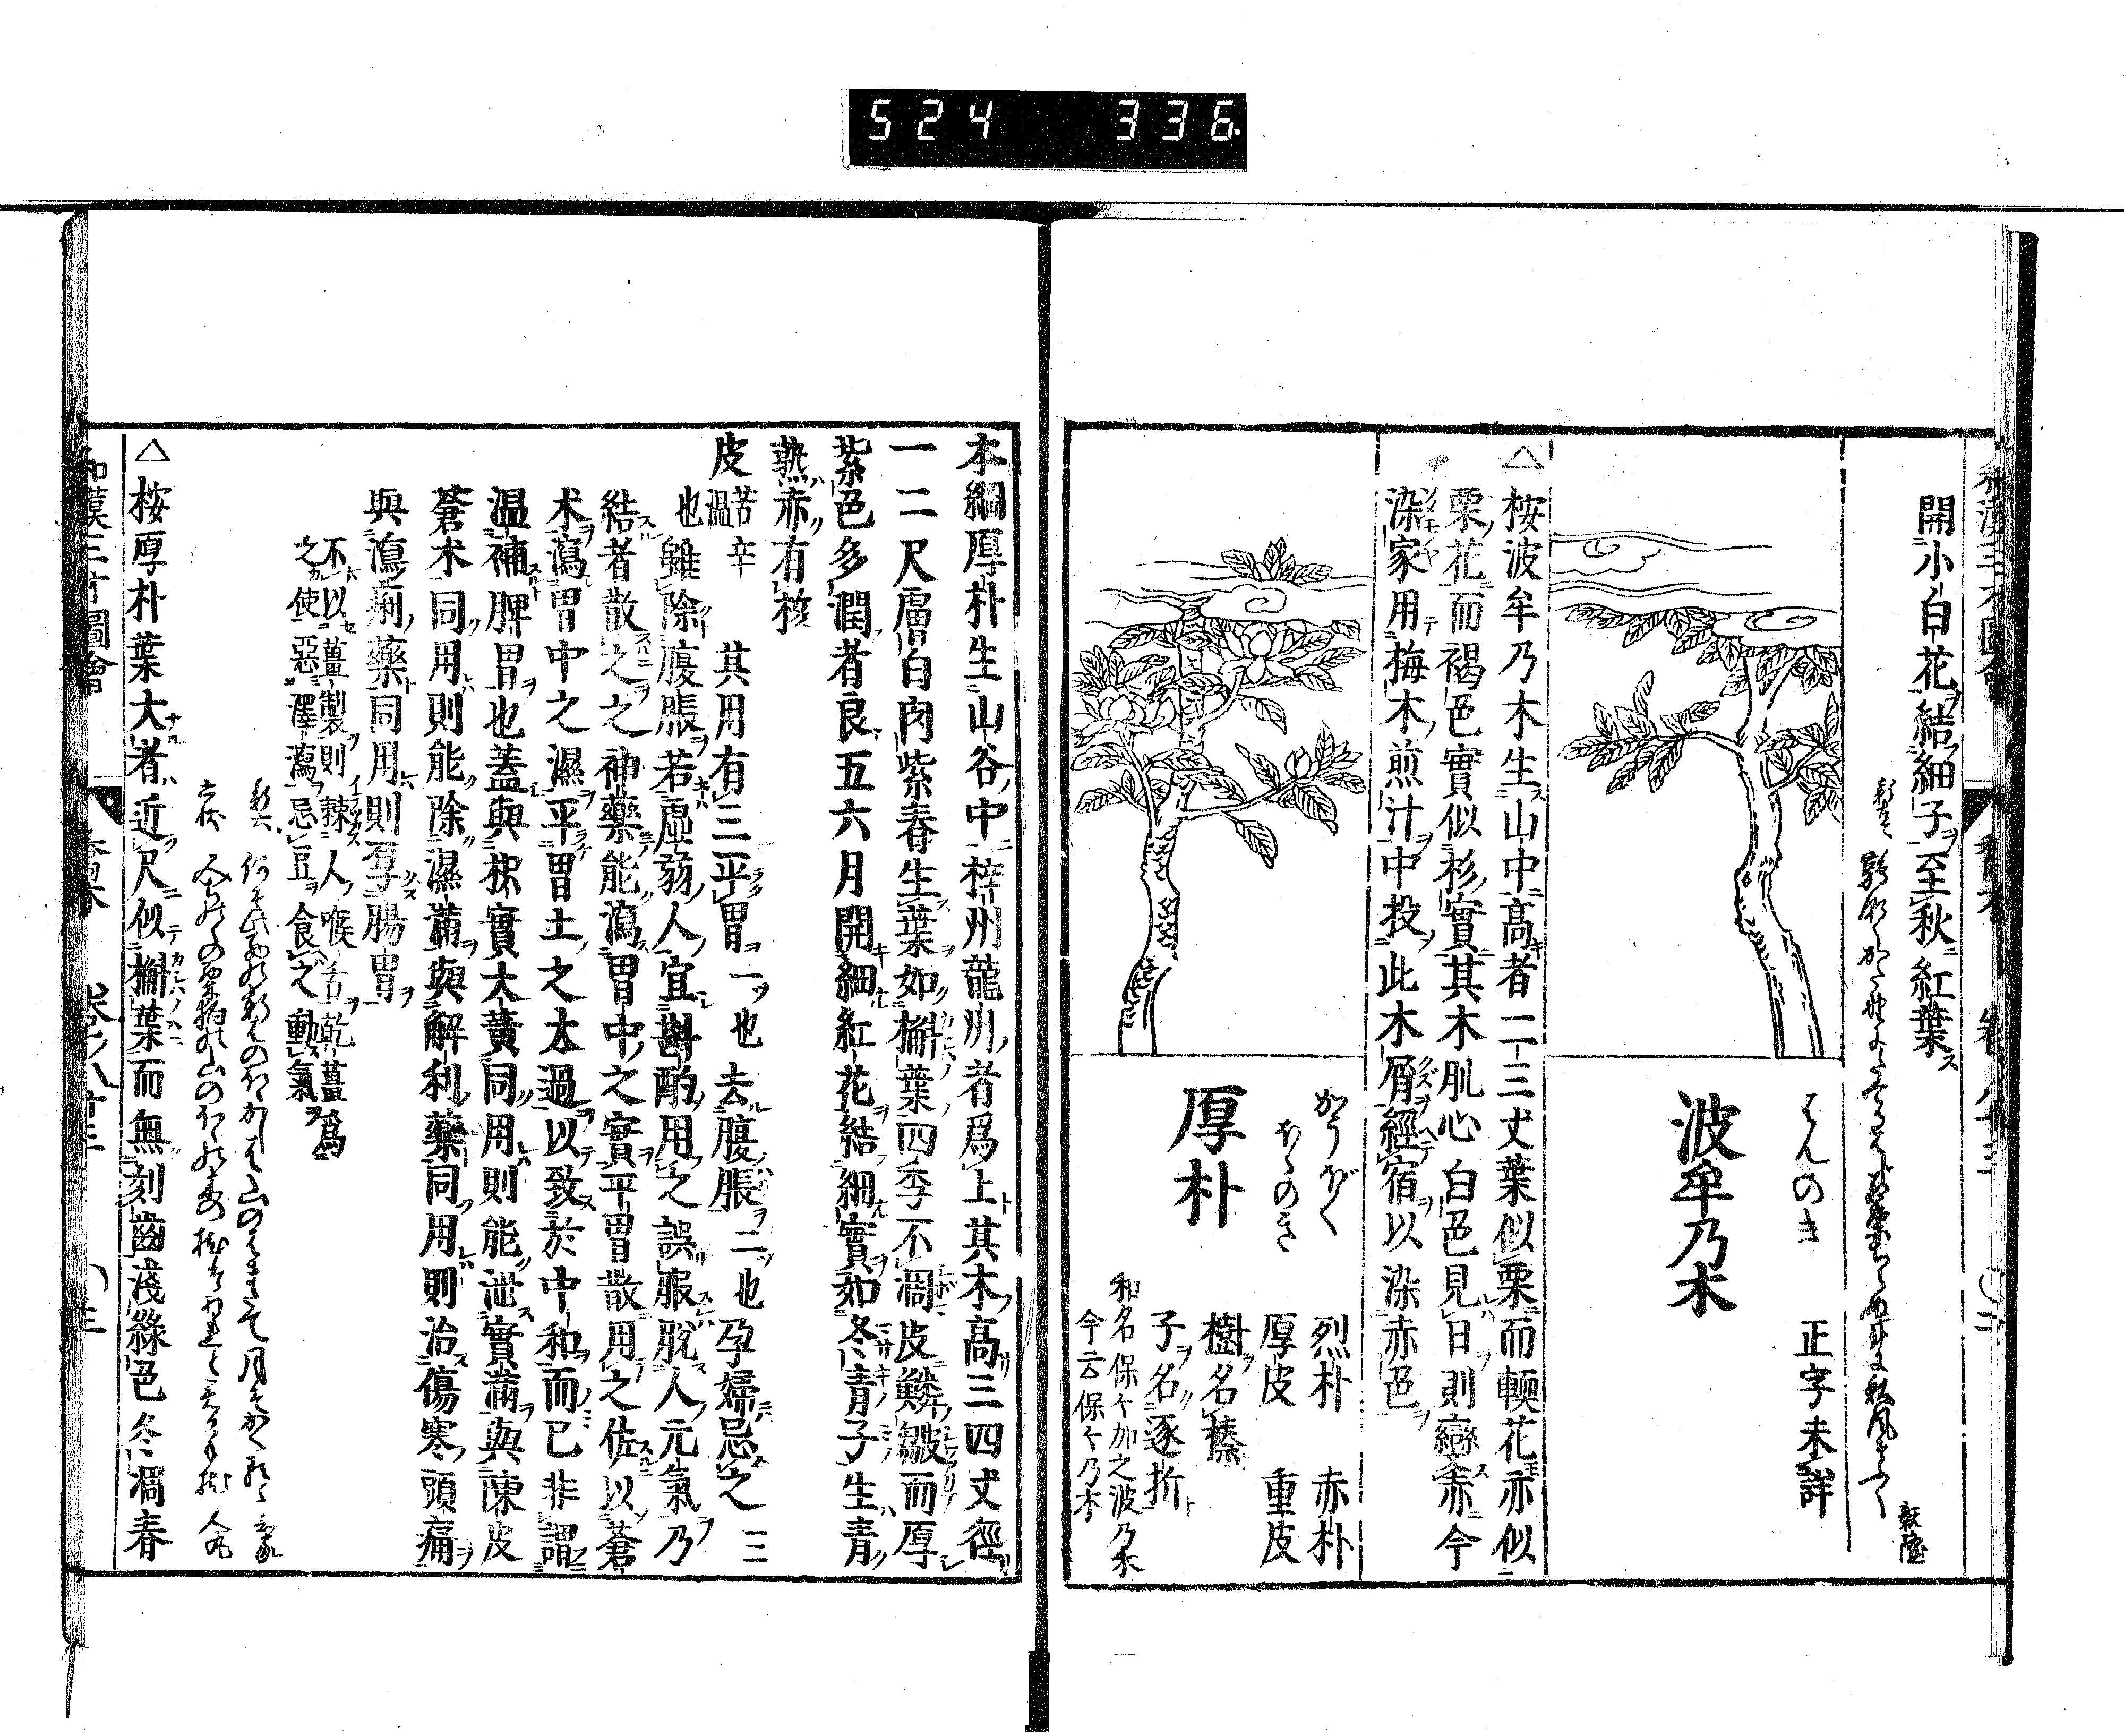 524 336
開小白花結細子至秋紅葉
はんのき
正字未詳
波牟乃木
△桉波牟乃木生山中高者二三丈葉似栗而輭花亦似
栗花而褐色實似杉實其木肌心白色見日則變赤今
染家用梅木煎汁中投此木屑經宿以染赤色
かうぼく
ほゝのき
厚朴
烈朴 赤朴
厚皮 重皮
樹名榛
子名逐折
和名保々加之波乃木
今云保々乃木
本綱厚朴生山谷中梓州龍州者爲上其木高三四丈徑
一二尺膚白肉紫春生葉如槲葉四季不凋皮鱗皺而厚
紫色多潤者良五六月開細紅花結細實如冬青子生青
熟赤有核
皮 苦辛温 其用有三平胃一ッ也去腹脹二ッ也孕婦忌之三
也雖除腹脹若虛弱人宜斟酌用之誤服脫人元氣乃
結者散之之神藥能瀉胃中之實平胃散用之佐以蒼
朮瀉胃中之濕平胃土之太過以致於中和而已非謂
温補脾胃也蓋與枳實大黃同用則能泄實滿與陳皮
蒼朮同用則能除濕滿與解利藥同用則治傷寒頭痛
與瀉痢藥同用則厚腸胃
不以薑製則棘人喉舌乾薑爲
之使惡澤瀉忌豆食之動氣
△桉厚朴葉大者近尺似槲葉而無刻齒淺綠色冬凋春
和漢三才圖會 喬木 卷之八十三